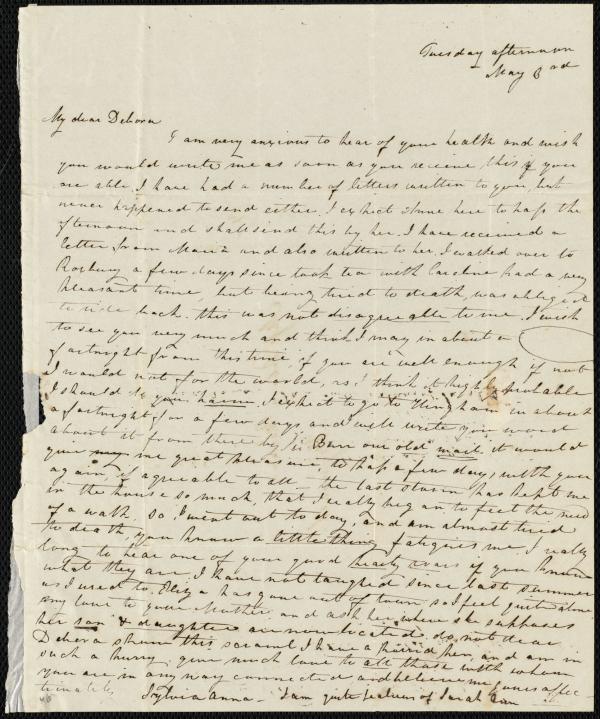 Tuesday afternoon
May 3rd
My dear Debora
I am very anxious to hear of your health and wish
you would write me as soon as you receive this if you
are able. I have had a number of letters written to you, but
never happened to send either. I expect Anne here to pass the
afternoon and shall send this by her. I have received a
letter from Maria and also written to her. I walked over to
Roxbury a few days since took tea with Caroline had a very
pleasant time, but being tired to death, was obliged
to ride back. this was not disagreeable to me. I wish
to see you very much and think I may in about a
fortnight from this time, if you are well enough if not
I would not for the world, as I think it highly probable
I should do you harm. I expect to go to Hingham in about
a fortnight for a few days and will write you word
about it from there by Burr our old mail it would
give me great pleasure, to pass a few days, with you
again, if agreeable to all _ the last storm has kept me
in the house so much, that I really began to feel the need
of a walk. so I went out to day, and am almost tired
to death, you know a little thing fatigues me, I really
long to hear one of your good hearty roars if you know
what they are. I have not laughed since last summer
as I used to. Eliza has gone out of town, so I feel quite alone
my love to your Mother, and ask her where she supposes
her son & daughter are now located. do not dear
Debora show this scrawl I have a horrid pen, and am in
such a hurry. give much love to all those with whom
you are in any way connected and believe me yours affec
tionately Sylvia Anna _ I am quite jealous of Sarah